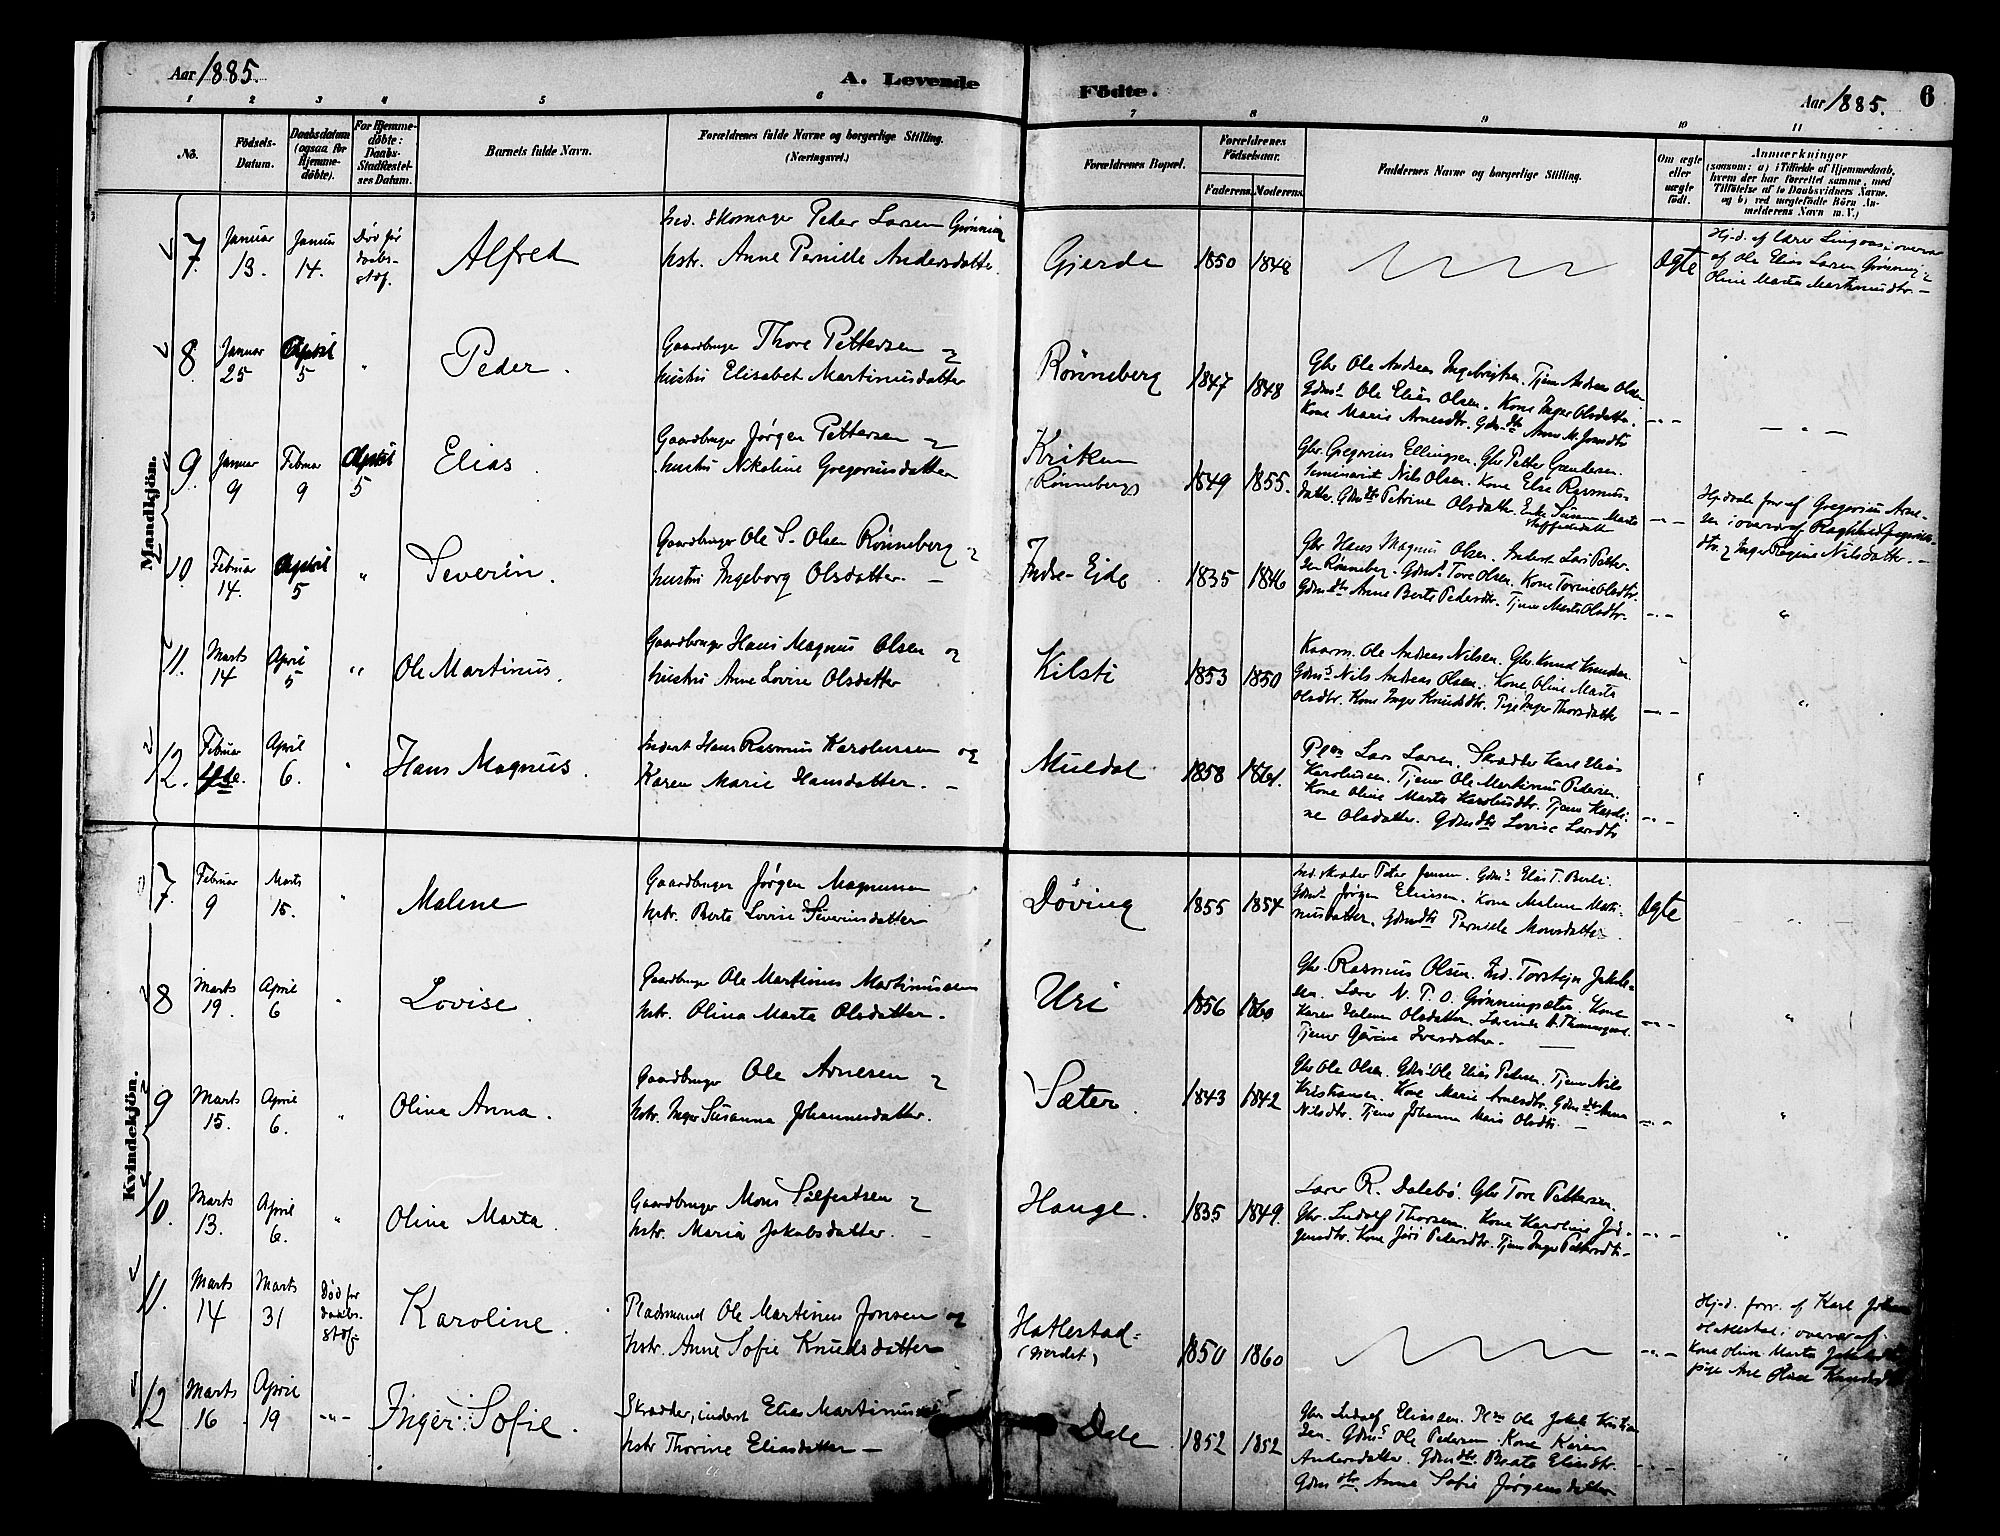 Aar 1885.
A. Levende
Födte.
Aar 1885.
6
1 2 3 4 5 6 7 8 9 10 11
No.
Födsels-
Datum.
Daabsdatum
(ogsaa for
Hjemme-
döbte).
For Hjemme-
döbte:
Daabs-
Stadfæstel-
ses Datum.
Barnets fulde Navn.
Forældrenes fulde Navne og borgerlige Stilling.
(Næringsvei.)
Forældrenes Bopæl.
Forældrenes
Födselsaar.
Faderens. Moderens.
Faddernes Navne og borgerlige Stilling.
Om ægte
eller
uægte
födt.
Anmærkninger
(saasom: a) i Tilfælde af Hjemmedaab,
hvem der har forrettet samme, med
Tilföielse af to Daabsvidners Navne,
og b) ved uægtefödte Börn An-
melderens Navn m. V.)
Mandkjön.
7.
Januar
13.
Januar
14.
Død før
daabs-
stdf.
Alfred
Ind. Skomager Peder Larsen Grønning
hstr. Anne Pernille Andersdatter.
Gjerde
1850
1848
Ægte
Hj.d. af Lærer Lingaas i overvær
af Ole Elias Larsen Grønning &
Oline Marte Martinusdtr. –
8.
Januar
25
April
5
"
Peder.
Gaardbruger Thore Pettersen &
hustru Elisabet Martinusdatter
Rønneberg
1847
1848
Gbr Ole Andreas Ingebrigtsen. Tjener Andreas Olsen
Gdms. Ole Elias Olsen. Kone Inger Olsdatter.
Kone Marie Arnesdtr. Gdmdtr Anne M.
9.
Januar
9
Februar
9
April
5
Elias.
Gaardbruger Jørgen Pettersen &
hustru Nikoline Gregoriusdatter
Kriken
(Rønneberg)
1849
1855.
Gbr. Gregorius Ellingsen. Gbr Petter Gundersen.
Seminarist Nils Olsen. Kone Else Rasmus-
datter. Gdmdtr Petrine Olsdatter. Enke Susanne Marte
Steffensdatter
Hj.daab forr. af Gregorius Arne-
sen i overvær af Ragnhild Gregorius-
dtr. & Inger Regine Nilsdatter. –
10.
Februar
14.
April
5
"
Severin.
Gaardbruger Ole S. Olsen Rønneberg &
hustru Ingeborg Olsdatter. –
Indre-Eide
1835
1846
Gbr Hans Magnus Olsen. Inderst Lars Petter-
sen Rønneberg. Gdms. Tore Olsen. Kone Torine Olsdtr.
Gdmdtr Anne Berte Pedersdtr. Tjener Marte Olsdtr.
11.
Marts
14
April
5
"
Ole Martinus.
Gaardbruger Hans Magnus Olsen og
hustru Anne Lovise Olsdatter
Kilsti
1853
1850
Kaarm. Ole Andreas Nilsen. Gbr Knud Knudsen
Gdms. Nils Andreas Olsen. Kone Oline Marte
Olsdtr. Kone Inger Knudsdtr. Pige Inger Thorsdatter
12.
Februar
April
6.
"
Hans Magnus.
Inderst Hans Rasmus Karolussen og
Karen Marie Hansdatter. –
Muldal
1858
1861.
Plm Lars Larsen. Skrædder Karl Elias
Karolussen. Tjener Ole Martinus Pedersen.
Kone Oline Marte Karolusdtr. Tjener Karoli-
ne Olsdatter. Gdmdtr Lovise Larsdtr
Kvindekjön.
7.
Februar
9
Marts
15.
"
Malene
Gaardbruger Jørgen Magnussen
hstr. Berte Lovise Severinsdatter
Døving
1855
1854
Ind. skræder Peter Jensen. Gdms. Elias T. Berli.
Gdms. Jørgen Eliassen. Kone Malene Marti-
nusdatter. Gdmdtr Pernille Monsdatter.
Ægte
8
Marts
19.
April
6
"
Lovise
Gaardbruger Ole Martinus Martinussen
hstr. Olina Marta Olsdatter.
Uri
1856
1860
Gbr. Rasmus Olsen. Ind. Torstein Jakob-
sen. Lærer N. P. O. Grønningsæter. Kone
Karen Helene Olsdatter. Lærerinde
Tjener Gurine Iversdatter.
9
Marts
15.
April
6.
"
Olina Anna.
Gaardbruger Ole Arnesen &
hstr. Inger Susanna Johannesdatter.
Sæter.
1843
1842
Gbr Ole Olsen. Gdms. Ole Elias Pedersen. Tjener Nils
Kristiansen. Kone Marie Arnesdtr. Gdmdtr Anna
Nilsdtr. Tjener Johanne Marie Olsdtr. –
10.
Marts
13.
April
6.
"
Olina Marta.
Gaardbruger Mons Silfestsen &
hstr. Maria Jakobsdatter. –
Hauge.
1835
1849.
Lærer R. Dalebø. Gbr Tore Pettersen.
Gbr. Ludolf Thorsen. Kone Karoline Jør-
gensdtr. Kone Jøri Petersdtr. Tjener Inger Pettersdtr.
11.
Marts
14
Marts
31
Død før
daabs-
stdf.
Karoline.
Pladsmand Ole Martinus Jonsen og
hstr. Anne Sofie Knudsdatter
Hatlestad-
(Gjerdet)
1850
1860
Hj.d. forr. af Karl Johan
Hatlestad i overvær af
Kone Oline Marte
pige Ane Oline Knudsdtr
12
Marts
16
April
19
Inger Sofie.
Skrædder, inderst Elias Martinussen
hstr Thorine Eliasdatter –
Dale
1852
1852
Gbr Ludolf Eliassen. Plm Ole Jakob Kristian-
sen. Gdms. Ole Pedersen. Kone Karen
Andersdatter. Gdmdtr. Beate Eliasdtr.
Gdmdtr. Anne Sofie Jørgensdatter